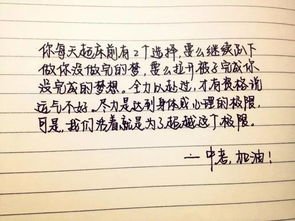 你每天起床前有2个选择，要么继续趴下
做你没做完的梦，要么拉开被子完成你
没完成的梦想。全力以赴过，才有资格说
运气不好。尽力是达到身体或心理的极限，
可是，我们活着就是为了超越这个极限。
—中考，加油！